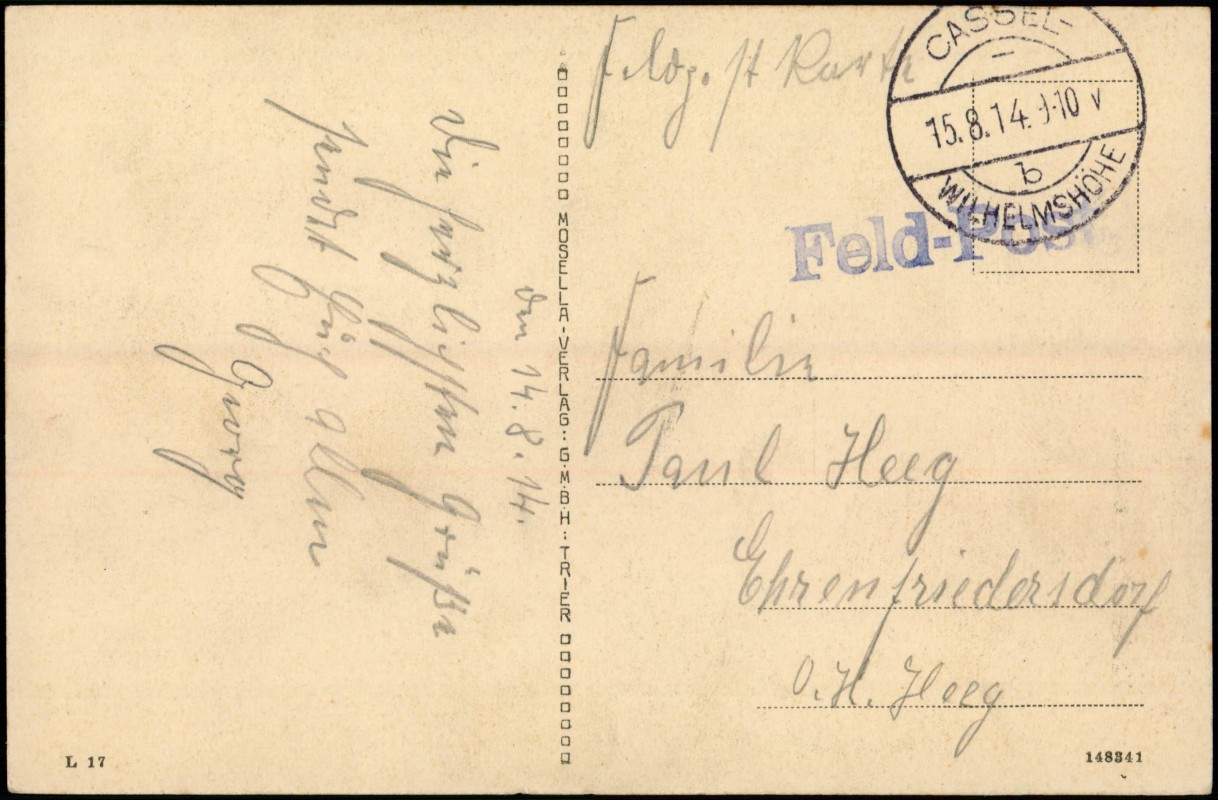 Feldp.st Karte
CASSEL-
15.8.14.9-10 V
b
WILHELMSHÖHE
Feld-Post
Familie
Paul Heeg
Ehrenfriedersdorf
O.H. Heeg
den 14.8.14.
Die herzlichsten Grüße
sendet Euch allen
Georg
MOSELLA-VERLAG: G.M.B.H: TRIER
L 17
148341